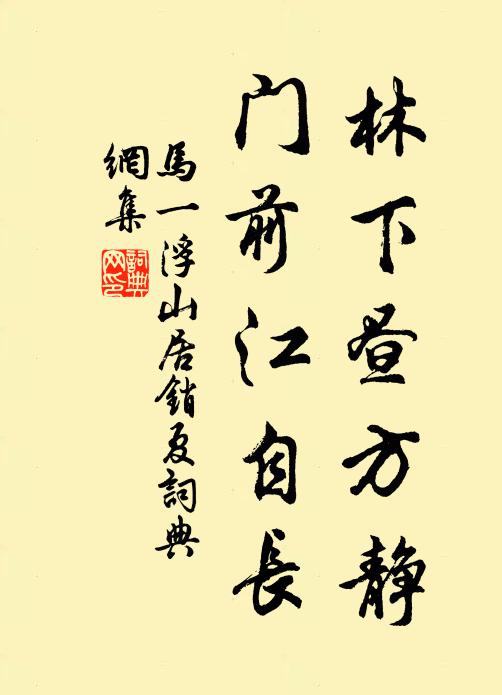 林下昼方静
门前江自長
馬一浮山居銷夏詞典
網集
詞典网印